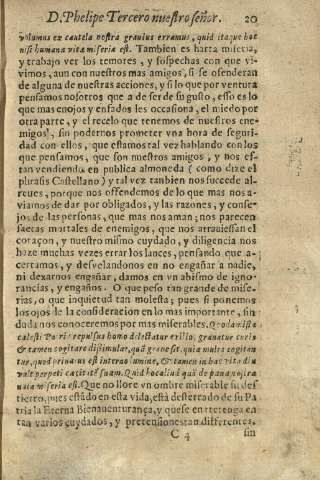 D. Phelipe Tercero nuestro señor. 20
volumus ex cautela nostra gravius erramus, quid itaque hoc
nisi humana vita miseria est. Tambien es harta miseria,
y trabajo ver los temores, y sospechas con que vi-
vimos, aun con nuestros mas amigos, si se ofenderan
de alguna de nuestras acciones, y si lo que por ventura
pensamos nosotros que a de ser de su gusto, esso es lo
que mas enojos y enfados les occasiona, el miedo por
otra parte, y el recelo que tenemos de nuestros ene-
migos, sin podernos prometer vna hora de seguri-
dad con ellos, que estamos tal vez hablando con los
que pensamos, que son nuestros amigos, y nos es-
tan vendiendo en publica almoneda (como dize el
phrasis Castellano) y tal vez tanbien nos succede al-
reues, porque nos offendemos de lo que mas nos a-
viamos de dar por obligados, y las razones, y conse-
jos de las personas, que mas nos aman; nos parecen
saetas mortales de enemigos, que nos atrauiessan el
coraçon, y nuestro mismo cuydado, y diligencia nos
haze muchas vezes errar los lances, pensando que a-
certamos, y desvelandonos en no engañar a nadie,
ni dexarnos engañar, damos en vn abismo de igno-
rancias, y engaños. O que peso tan grande de mise-
rias, o que inquietud tan molesta; pues si ponemos
los ojos de la consideracion en lo mas importante, sin
duda nos conoceremos por mas miserables.
calesti Patri repulsus homo delectatur exilio, granatur curis
& tamen cogitare dissimulat, quã graue sit. quia multa cogitan
tur, quod priuatus est interno lumine, & tamen in hac vita diu
vult perpeti cæcitatẽ suam. Quid hoc aliud quã de pæna nostra
nata miseria est. Que no llore vn ombre miserable su des
tierro, pues estãdo en esta vida, està desterrado de su Pa
tria la Eterna Bienauenturança, y que se entretenga en
tan varios cuydados, y pretensiones tan differentes,
C 4 sin